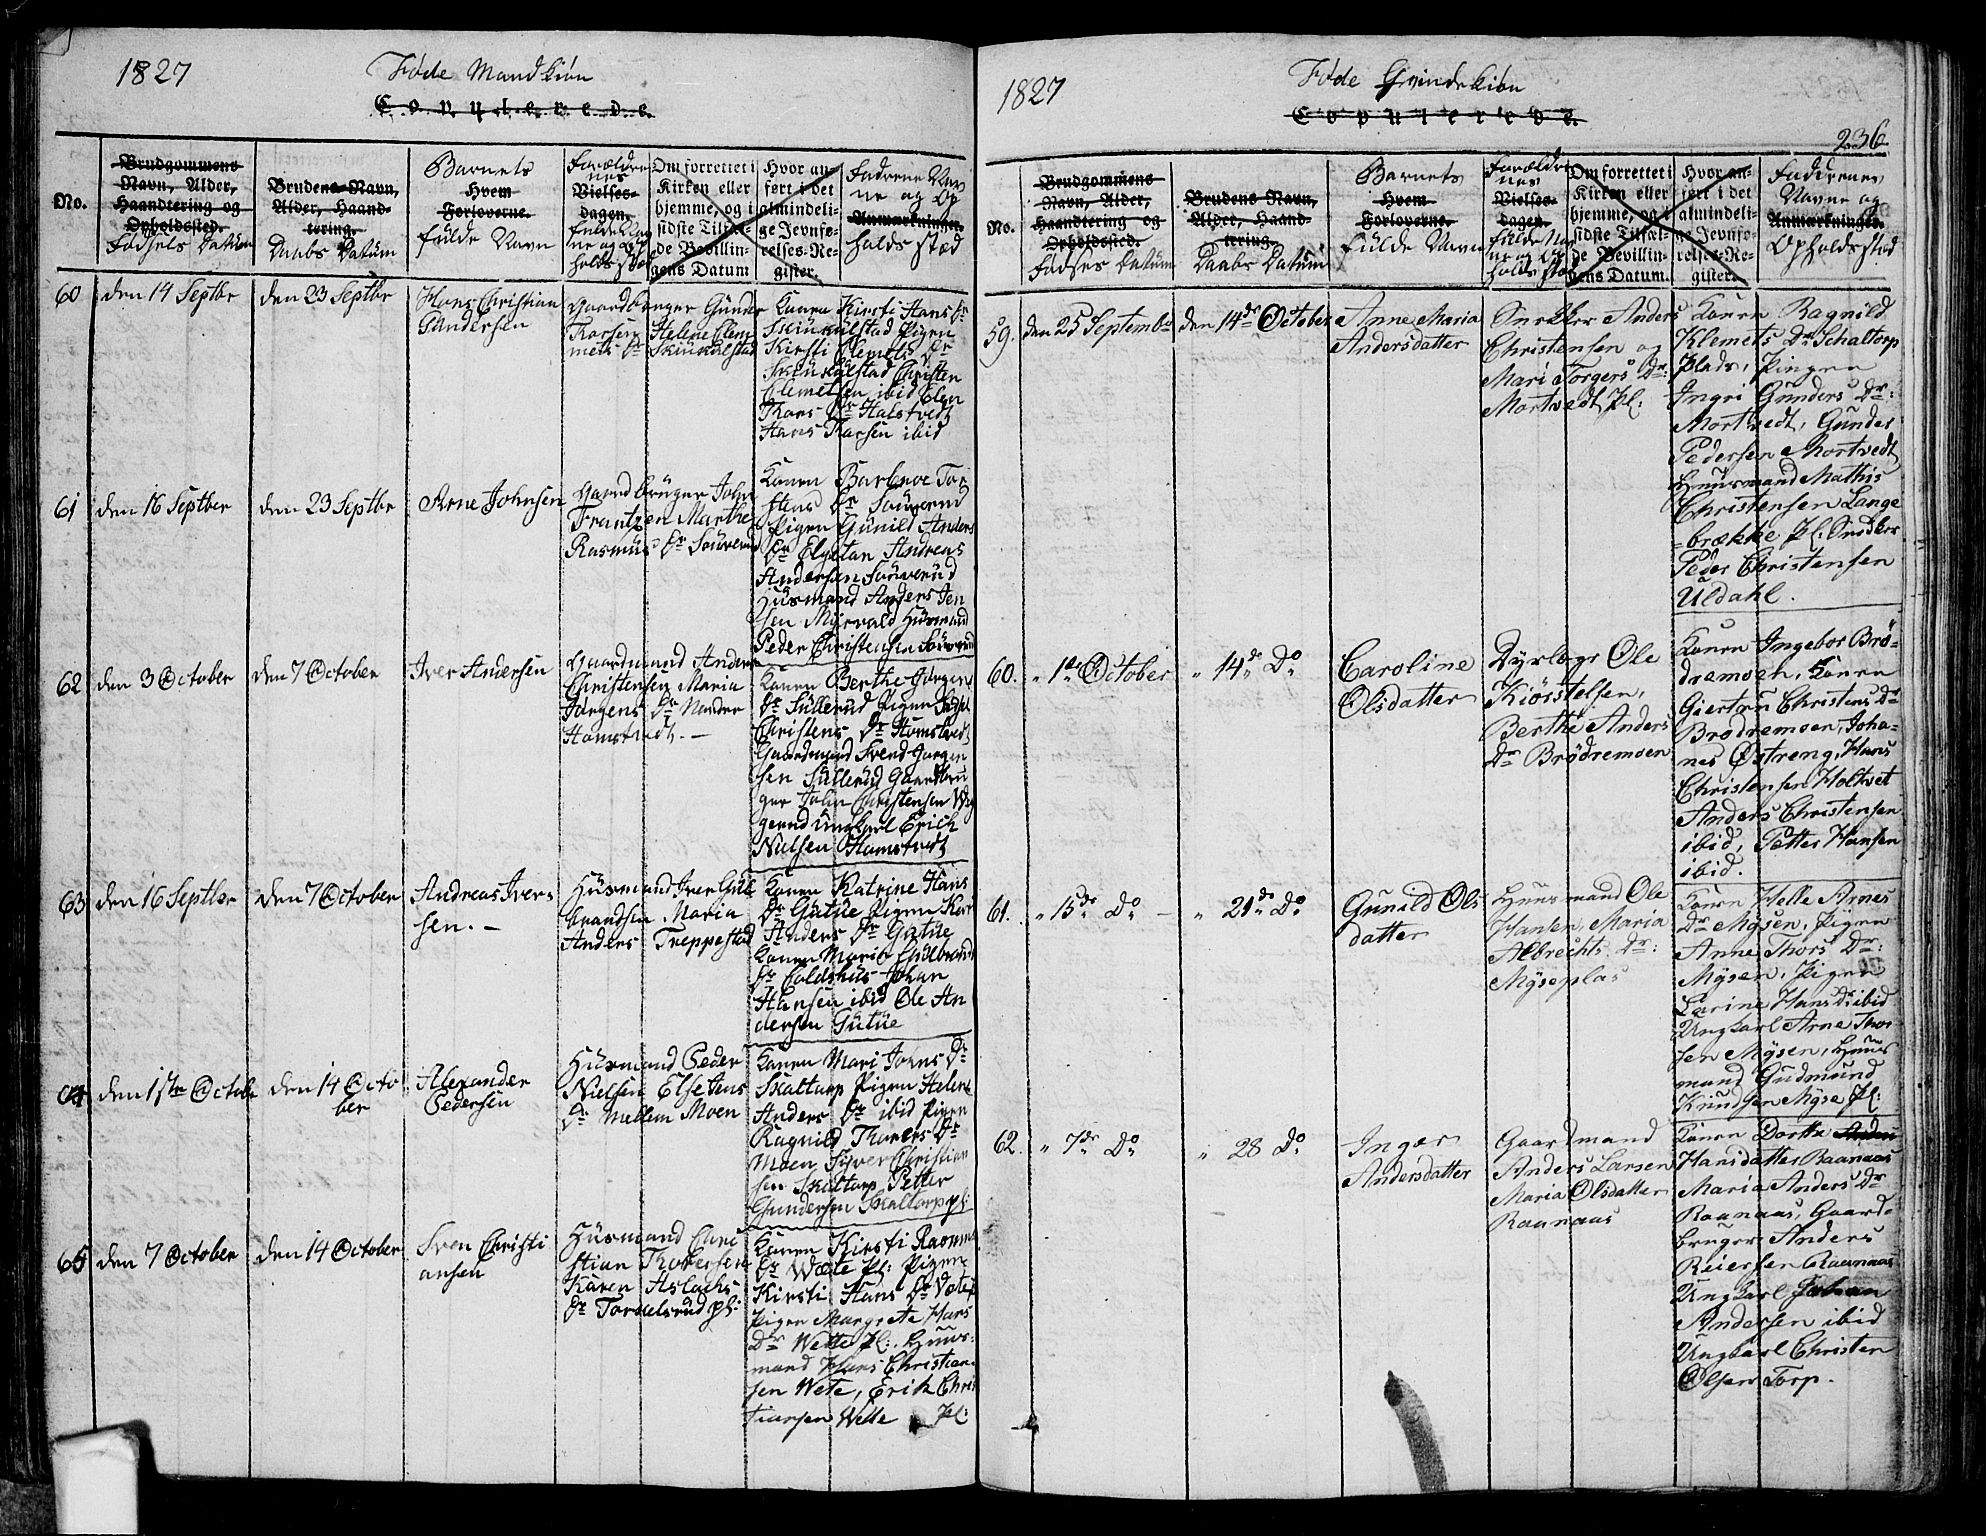 1827
Føde Mandkiøn
Copulerede.
No.
Brudgommens
Navn, Alder,
Haandtering og
Opholdssted.
Fødsels Datum
Brudens Navn,
Alder, Haand-
tering.
Daabs Datum
Barnets
Hvem
Forloverne.
fulde Navn
Foreldre
nes
Vielses-
dagen.
fulde Nav
ne og Op
holds sted
Om forrettet i
Kirken eller
hjemme, og i
sidste Tilfæl-
de Bevillin-
gens Datum
Hvor an-
ført i det
almindeli-
ge Jevnfø-
relses-Re-
gister.
Fadrene Nav
ne og Op
Anmærkninger.
holds sted
60
den 14 Septbr
den 23 Septbr
Hans Christian
Gundersen
Gaardbruger Gunder
Thorsen Helene Clem
mets Dr Skiukulstad
Konen Kirsti Hans Dr
Skiukulstad Pigen
Kirsti Clemets Dr
Skiukulstad Christen
Clemetsen ibid Elen
Thors Dr Halstvedt
Hans Thorsen ibid
61
den 16 Septber
den 23 Septbr
Arne Johnsen
Gaardbruger John
Frantzen Marthe
Rasmus Dr Souverud
Konen Barbroe Tor
stens Dr Souverud
Pigen Gunild Anders
Dr Elgetan Andreas
Andersen Souverud
Husmand Anders Jen
sen Myrvold Husmand
Peder Christensen Souverud
62
den 3 October
den 7 October
Iver Andersen
Gaardmand Anders
Christensen Maria
Jørgens Dr Nordre
Homstvedt. -
Konen Berthe Jørgens
Dr Sullerud Pigen
Christens Dr Homstvedt
Gaardmand Svend Jørgen
sen Sullerud Gaardbru
ger John Christensen
gerud Unkarl Erich
Nielsen Homstvedt
63
den 16 Septber
den 7 October
Andreas Iver-
sen. -
Husmand Iver Gul
brandsen Maria
Anders Treppestad
Konen Katrine Hans
Dr Gutue Pigen Kari
Anders Dr Gutue
Konen Marie Gulbrand
Dr Coldshus Johan
Hansen ibid Ole An
dersen Gutue
64
den 1ste October
den 14 Octo
ber
Alexander
Pedersen
Husmand Peder
Nielsen Else Jens
Dr Mellem Moen
Konen Mari Joens Dr
Skaltorp Pigen Helene
Anders Dr ibid Pigen
Ragnild Thorers Dr
Moen Syver Christian
sen Skaltorp Petter
Gundersen Skaltorp pl:
65
den 7 October
den 14 October
Sven Christi
ansen
Husmand Chri
stian Thoresen
Karen Aslachs
Dr Tormelsrud pl:
Konen Kirsti Rasmus
Dr Wæte Pl: Pigen
Kirsti Hans Dr Væte
Pigen Margrete Hans
Dr Wette Pl: Huus-
mand Hans Christian
sen Wete, Erik Chris
tiansen Wette Pl:
1827
Føde Qvindekiøn
Copulerede.
236
No.
Brudgommens
Navn, Alder,
Haandtering og
Opholdssted.
Fødses Datum
Brudens Navn,
Alder, Haand-
tering.
Daabs Datum
Barnets
Hvem
Forloverne.
fulde Navn
Foreldre
nes
Vielses-
dagen.
fulde Nav
ne og Op
holds sted
Om forrettet i
Kirken eller
hjemme, og i
sidste Tilfæl-
de Bevillin-
gens Datum.
Hvor an-
ført i det
almindeli-
ge Jevnfø-
relses-Re-
gister.
Faddrenes
Navne og
Anmærkninger.
Opholdssted
59.
den 25 Septembr
den 14de October
Anne Maria
Andersdatter
Snekker Anders
Christensen og
Mari Torgers Dr:
Mortvedt Pl:
Konen Ragnild
Klemets Dr Schaltorp
Plads, Pigen
Ingri Gunders Dr:
Mortvedt, Gunder
Pedersen Mortvedt
Huusmand Mathis
Christensen Lange
-brække Pl: Snedker
Peder Christensen
Uldahl.
60.
" 1de October
" 14de Do
Caroline
Olsdatter
Dyrlæge Ole
Kiøsstelsen,
Berthe Anders
Dr Brødremoen
Konen Ingebor Brø-
dremoen, Konen
Giertru Christens Dr
Brødremoen, Joha-
nes Østreng, Hans
Christensen Holtvet
Anders Christensen
ibid, Petter Hansen
ibid.
61.
" 15de Do -
" 21de Do
Gunild Ols
datter
Huusmand Ole
Hansen, Maria
Albrechts Dr:
Myseplas
Konen Helle Arnes
Dr Mysen, Pigen
Anne Thors Dr:
Mysen, Pigen
Larine Hans Dr ibid
Ungkarl Arne Thor
sen Mysen, Huus
mand Gudmund
Knudsen Myse Pl:
62.
" 7de Do
" 28 Do
Inger
Andersdatter
Gaardmand
Anders Larsen
Maria Olsdatter
Raanaas
Konen Dorthe Anders
Hansdatter Raanaas
Maria Anders Dr
Raanaas, Gaard-
bruger Anders
Reiersen Raanaas
Ungkarl Johan
Andersen ibid
Ungkarl Christen
Olsen Torp.